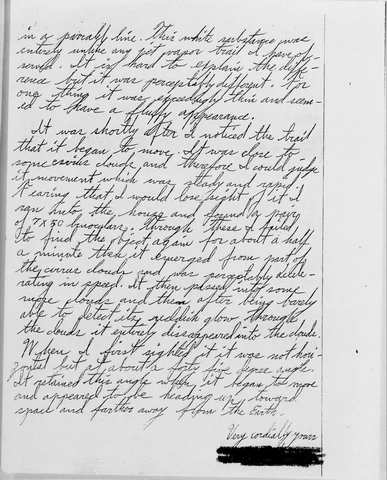 in a parallel line. This white substance was
entirely unlike any jet vapor trail I have ob-
served. It is hard to explain the diffe-
rence but it was perceptably different. For
one thing it was exceedingly thin and seem-
ed to have a fluffy appearance.
It was shortly after I noticed the trail
that it began to move. It was close to
some cirrus clouds and therefore I could judge
it movement which was steady and rapid.
Fearing that I would lose sight of it I
ran into the house and found a pair
of 7X50 binoculars. Through these I failed
to find the object again for about a half
a minute then it emerged from part of
the cirrus clouds and was perceptably accele-
rating in speed. It then passed into some
more clouds and then after being barely
able to detect its reddish glow through
the clouds it entirely disappeared into the clouds.
When I first sighted it it was not hori-
zontal but at about a forty five degree angle.
It retained this angle when it began to move
and appeared to be heading up toward
space and farther away from the Earth.
Very cordially yours